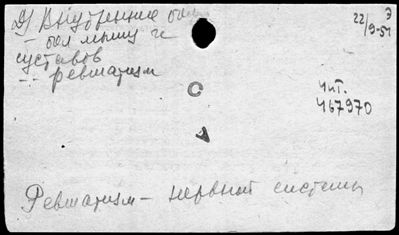 Д) Внутренние бол
– бол мышц и
суставов
– :– ревматизм
22/9-51
Э
Чит.
467970
С
А
Ревматизм – нервной системы